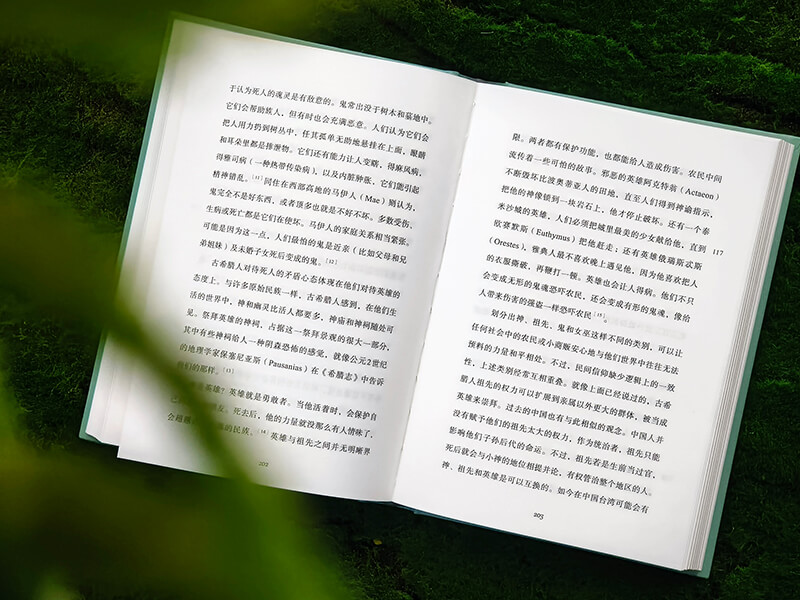 于认为死人的魂灵是有敌意的。鬼常出没于树木和墓地中。
它们会帮助族人，但有时也会充满恶意。人们认为它们会
把人用力扔到树丛中，任其孤单无助地悬挂在上面，眼睛
和耳朵里都是排泄物。它们还有能力让人变瞎，得麻风病，
得雅司病（一种热带传染病），以及内脏肿胀，它们能引起
精神错乱。[11]同住在西部高地的马伊人（Mae）则认为，
鬼完全不是好东西，或者顶多也就是不好不坏。多数受伤、
生病或死亡都是它们在使坏。马伊人的家庭关系相当紧张。
可能是因为这一点，人们最怕的鬼是近亲（比如父母和兄
弟姐妹）及未婚子女死后变成的鬼。[12]
古希腊人对待死人的矛盾心态体现在他们对待英雄的
态度上。与许多原始民族一样，古希腊人感到，在他们生
活的世界中，神和幽灵比活人都要多，神庙和神祠随处可
见。祭拜英雄的神祠，占据这一祭拜景观的很大一部分，
其中有些神祠给人一种阴森恐怖的感觉，就像公元2世纪
的地理学家保塞尼亚斯（Pausanias）在《希腊志》中告诉
我们的那样。[13]
英雄？英雄就是勇敢者。当他活着时，会保护自
友。死去后，他的力量就没那么有人情味了，
会超越 的民族。[14]英雄与祖先之间并无明晰界
202
限。两者都有保护功能，也都能给人造成伤害。农民中间
流传着一些可怕的故事。邪恶的英雄阿克特翁（Actaeon）
不断毁坏比波奥蒂亚人的田地，直至人们得到神谕指示，
把他的神像锁到一块岩石上，他才停止破坏。还有一个泰
米沙城的英雄，人们必须把城里最美的少女献给他，直到
欧赛默斯（Euthymus）把他赶走；还有英雄俄瑞斯忒斯
117
（Orestes），雅典人最不喜欢晚上遇见他，因为他喜欢把人
的衣服撕破，再鞭打一顿。英雄也会让人得病。他们不只
会变成无形的鬼魂恐吓农民，还会变成有形的鬼魂，像给
人带来伤害的强盗一样恐吓农民[15]。
划分出神、祖先、鬼和女巫这样不同的类别，可以让
任何社会中的农民或小商贩安心地与他们世界中往往无法
预料的力量和平相处。不过，民间信仰缺少逻辑上的一致
性，上述类别经常互相重叠。就像上面已经说过的，古希
腊人祖先的权力可以扩展到亲属以外更大的群体，被当成
英雄来崇拜。过去的中国也有与此相似的观念。中国人并
没有赋予他们的祖先太大的权力，作为统治者，祖先只能
影响他们子孙后代的命运。不过，祖先若是生前当过官，
死后就会与小神的地位相提并论，有权管治整个地区的人。
神、祖先和英雄是可以互换的。如今在中国台湾可能会有
203